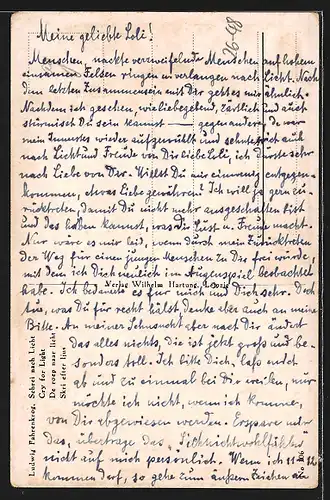 Meine geliebte Loli!
1698
Menschen, nackte verzweifelnde Menschen auf hohem
einsamen Felsen ringen u. verlangen nach Licht. Nach
dem letzten Zusammensein mit Dir geht es mir ähnlich.
Nachdem ich gesehen, wie liebegebend, zärtlich und auch
stürmisch Du sein kannst — gegen andere, da war
mein Innerstes wieder aufgewühlt und sehnte sich auch
nach Licht und Freude von Dir liebe Loli, ich dürste sehr
nach Liebe von Dir. Willst Du mir ein wenig entgegen-
kommen, etwas Liebe gewähren? Ich will ja gern zu-
rücktreten, damit Du nicht mehr ausgeschalten bist
und das haben kannst, was Dir Lust u. Freude macht.
Nur wäre es mir leid, wenn durch mein Zurücktreten
der Weg für einen jungen Menschen zu Dir frei würde,
mit dem ich Dich neulich im Augenspiel beobachtet
habe. Ich bedauerte es für mich und Dich sehr. Doch
tus, was Du für recht hälst, denke aber auch an meine
Bitte. An meiner Sehnsucht aber nach Dir ändert
Das alles nichts, die ist jetzt groß und be-
sonders toll. Ich bitte Dich, laß mich
ab und zu einmal bei Dir weilen, nur
möchte ich nicht, wenn ich komme,
von Dir abgewiesen werden. Erspare mir
das, übertrage das Sichnichtwohlfühlen
nicht auf mich persönlich. Wenn ich 11-12
kommen darf, so gehe zum äußern Zeichen
Verlag Wilhelm Hartung, Leipzig
Ludwig Fahrenkrog, Schrei nach Licht
Cry for Light
De roep naar licht
Skri efter lius
No. 106